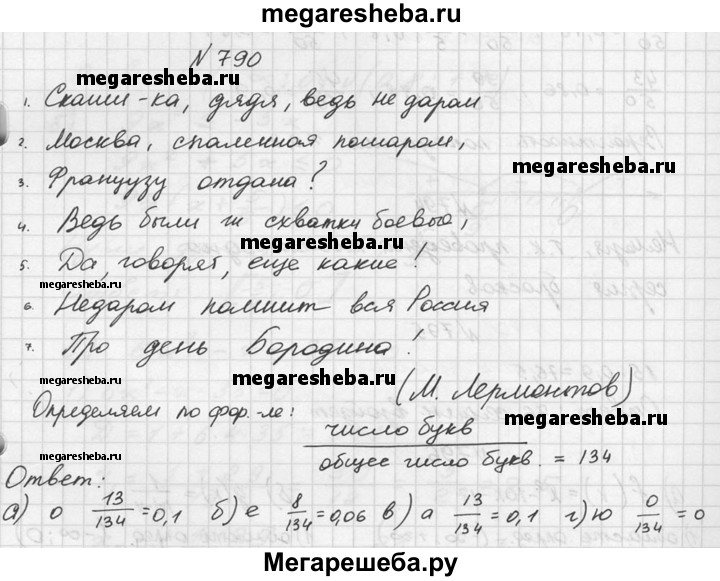 megaresheba.ru
N 790
megaresheba.ru
1. Скажи-ка, дядя, ведь не даром
2. Москва, спаленная пожаром,
megaresheba.ru
3. Французу отдана?
4. Ведь были ж схватки боевые,
megaresheba.ru
5. Да, говорят, еще какие!
megaresheba.ru
6. Недаром помнит вся Россия
7. Про день Бородина!
megaresheba.ru
(М. Лермонтов)
Определяем по фор-ле: число букв / общее число букв = 134
megaresheba.ru
megaresheba.ru
Ответ:
а) о 13/134 = 0,1 б) е 8/134 = 0,06 в) а 13/134 = 0,1 г) ю 0/134 = 0
Мегарешеба.ру